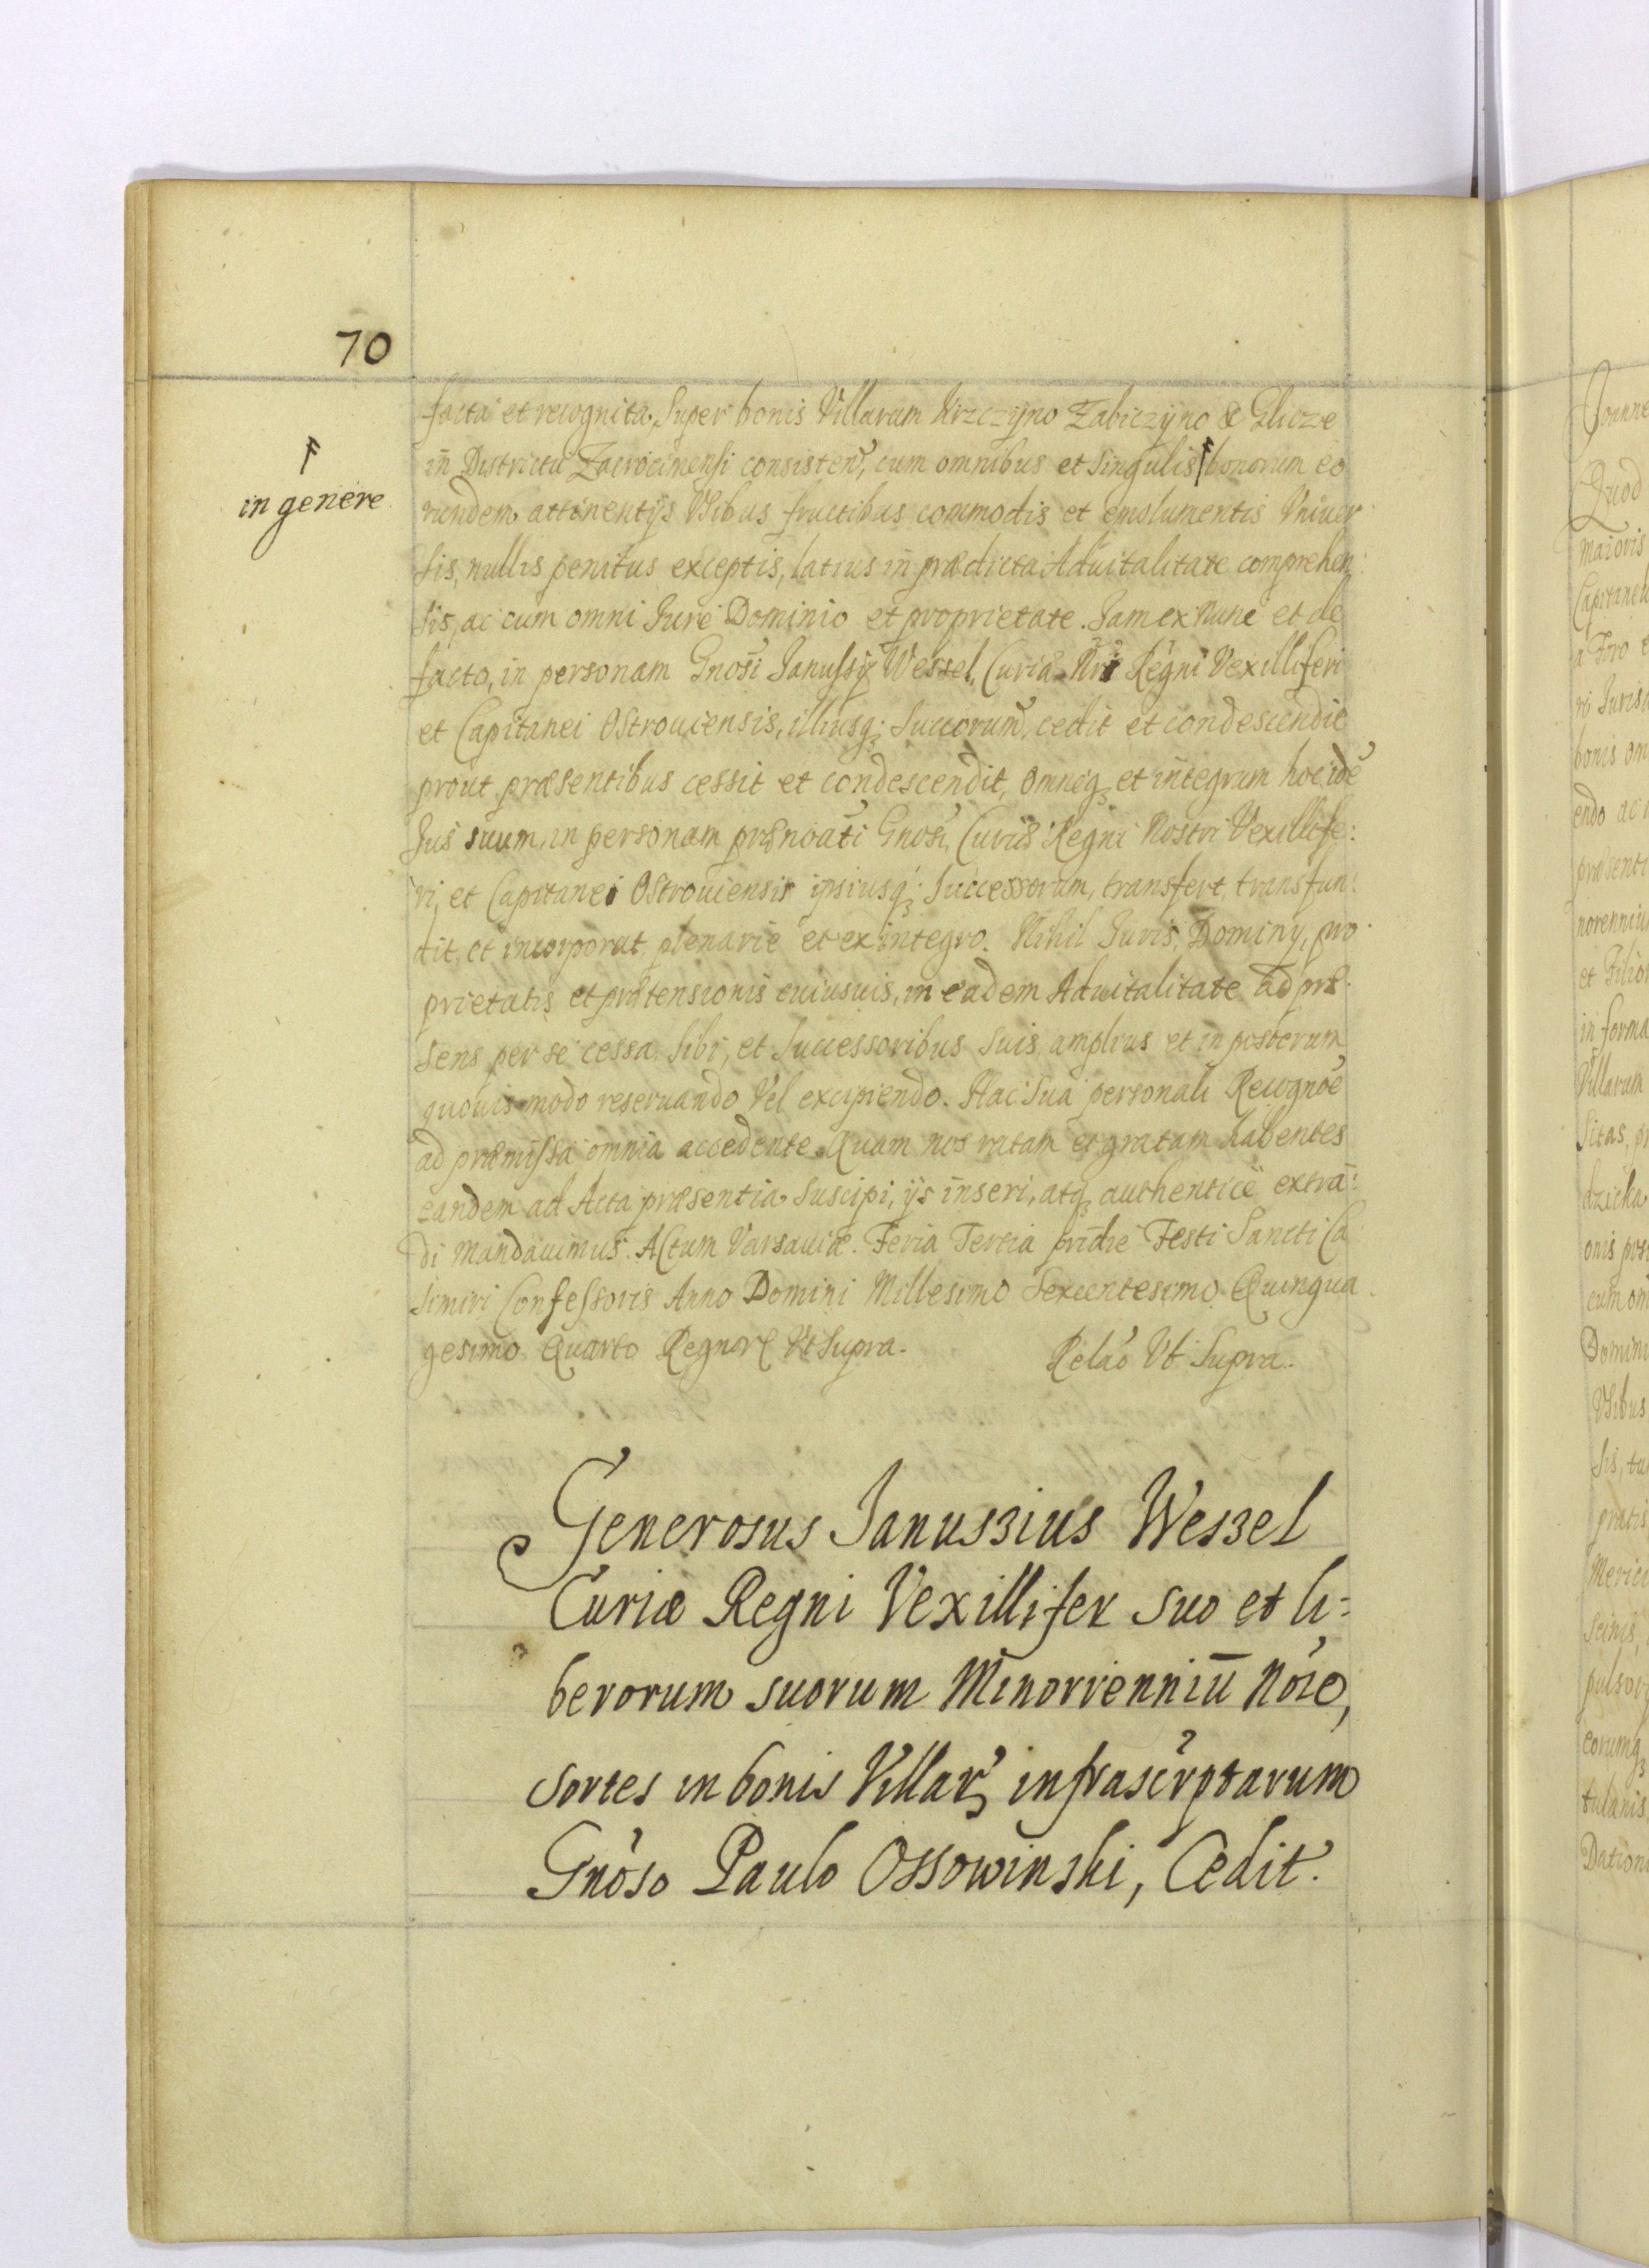 70
facta et recognita, Super bonis Villarum Krzczyno Zabiczyno & Glicze
in Districtu Zacrocimensi consisteñ, cum omnibus et Singulis bonorum eo
in genere
rundem attinentijs Vsibus fructibus commodis et emolumentis Vniuer
sis, nullis penitus exceptis, latius in prædicta Aduitalitate comprehen:
sis, ac cum omni Jure Dominio et proprietate. Jam ex nunc et de
facto, in personam Gnosi Janussij Wessel, Curiæ Nri Regni Vexilliferi
et Capitanei Ostrouiensis, illiusq; Succorum, cedit et condescendit
prout præsentibus cessit et condescendit, omneq; et integrum hoc idē
Jus suum, in personam prænoati Gnosi, Curiæ Regni Nostri Vexillife:
ri, et Capitanei Ostrouiensis ipsiusq; Successorum, transfert, transfun:
dit, et incorporat plenarie et ex integro. Nihil Juris, Dominij, pro
prietatis et prætensionis cuiusuis, in eadem Aduitalitate ad præ
sens per se cessa, sibi, et Successoribus Suis amplius et in posterum
quouis modo reseruando Vel excipiendo. Hac Sua personali Recognoe
ad præmissa omnia accedente. Quam nos ratam et gratam habentes
eandem ad Acta præsentia Suscipi, ijs inseri, atq; authentice extra:
di mandauimus. Actum Varsauiæ. Feria Tertia pridie Festi Sancti Ca
simiri Confessoris Anno Domini Millesimo Sexcentesimo Quinqua
gesimo Quarto Regnor Vt Supra. Relao Vt Supra.
Generosus Janussius Wessel
Curiæ Regni Vexillifer suo et li=
berorum suorum Minorrenniū Noie,
sortes in bonis Villar infrascrptarum
Gnoso Paulo Ossowinski, Cedit.